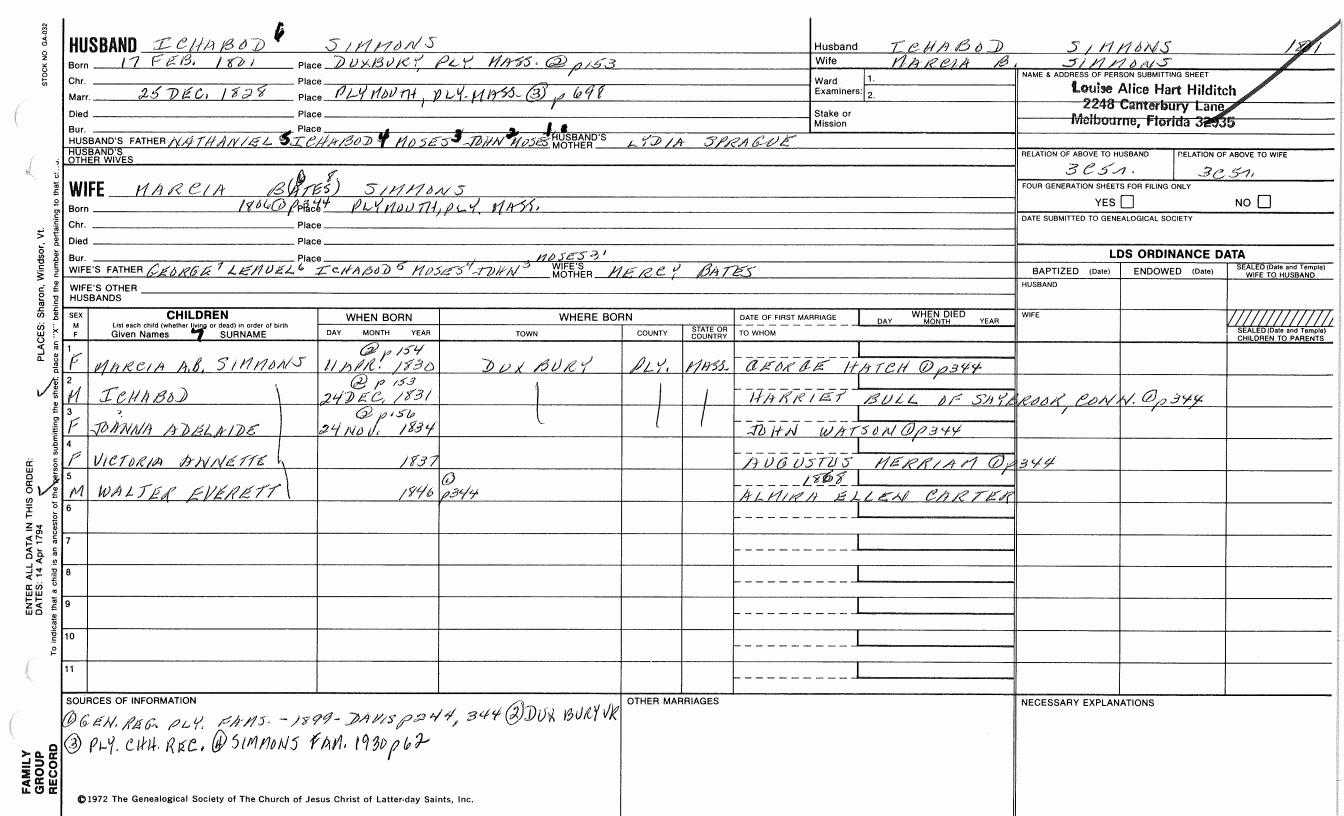 STOCK NO. GA-032
HUSBAND ICHABOD 6 SIMMONS
Born 17 FEB. 1801 Place DUXBURY, PLY. MASS. ② p153
Chr. Place
Marr. 25 DEC. 1828 Place PLYMOUTH, PLY. MASS. ③ p 698
Died Place
Bur. Place
HUSBAND'S FATHER NATHANIEL 5 ICHABOD 4 MOSES 3 JOHN 2 MOSES 1 HUSBAND'S MOTHER LYDIA SPRAGUE
HUSBAND'S OTHER WIVES
WIFE MARCIA B(ATES) 8 SIMMONS
Born 1806 ① p344 Place PLYMOUTH, PLY. MASS.
Chr. Place
Died Place
Bur. Place
WIFE'S FATHER GEORGE 7 LEMUEL 6 ICHABOD 5 MOSES 4 JOHN 3 MOSES 2, 1 WIFE'S MOTHER MERCY BATES
WIFE'S OTHER HUSBANDS
Husband ICHABOD SIMMONS 1801
Wife MARCIA B. SIMMONS
Ward Examiners: 1.
2.
Stake or Mission
NAME & ADDRESS OF PERSON SUBMITTING SHEET
Louise Alice Hart Hilditch
2248 Canterbury Lane
Melbourne, Florida 32935
RELATION OF ABOVE TO HUSBAND RELATION OF ABOVE TO WIFE
3C5r. 3C5r.
FOUR GENERATION SHEETS FOR FILING ONLY
YES NO
DATE SUBMITTED TO GENEALOGICAL SOCIETY
LDS ORDINANCE DATA
BAPTIZED (Date) ENDOWED (Date) SEALED (Date and Temple) WIFE TO HUSBAND
HUSBAND
WIFE
SEALED (Date and Temple) CHILDREN TO PARENTS
SEX M F CHILDREN WHEN BORN WHERE BORN DATE OF FIRST MARRIAGE WHEN DIED
List each child (whether living or dead) in order of birth
Given Names 7 SURNAME DAY MONTH YEAR TOWN COUNTY STATE OR COUNTRY TO WHOM DAY MONTH YEAR
② p 154
1 F MARCIA A.B. SIMMONS 11 APR. 1830 DUXBURY PLY. MASS. GEORGE HATCH ① p344
② p 153
2 M ICHABOD 24 DEC. 1831 HARRIET BULL OF SAYBROOK, CONN. ① p344
② p156
3 F JOANNA ADELAIDE 24 NOV. 1834 JOHN WATSON ① p344
4 F VICTORIA ANNETTE 1837 AUGUSTUS MERRIAM ① p344
5 M WALTER EVERETT 1846 ① p344 1868 ALMIRA ELLEN CARTER
6
7
8
9
10
11
SOURCES OF INFORMATION
① GEN. REG. PLY. FAMS. - 1899 - DAVIS p244, 344 ② DUXBURY VR
③ PLY. CHH. REC. ④ SIMMONS FAM. 1930 p62
OTHER MARRIAGES
NECESSARY EXPLANATIONS
©1972 The Genealogical Society of The Church of Jesus Christ of Latter-day Saints, Inc.
FAMILY GROUP RECORD
ENTER ALL DATA IN THIS ORDER:
DATES: 14 Apr 1794
PLACES: Sharon, Windsor, Vt.
To indicate that a child is an ancestor of the person submitting the sheet, place an "X" behind the number pertaining to that